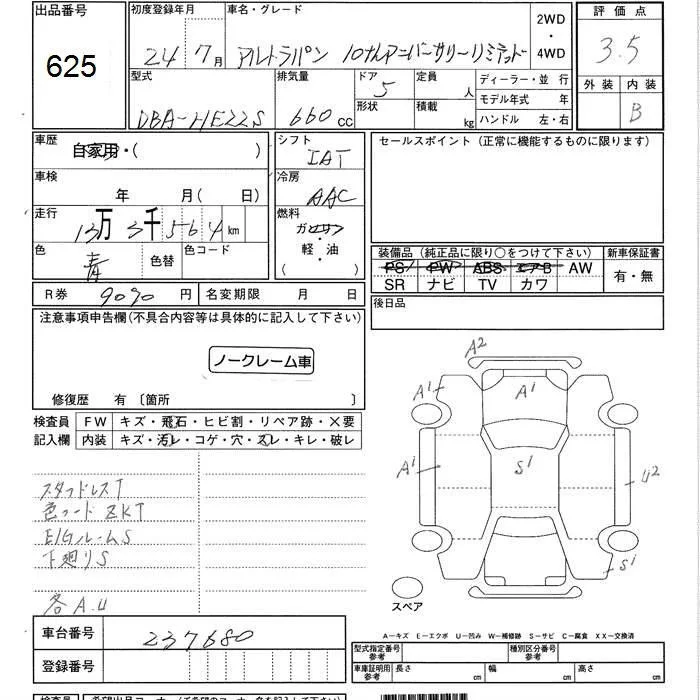 出品番号
625
初度登録年月
24年7月
車名・グレード
アルトラパン 10thアニバーサリーリミテッド
2WD
・
4WD
評価点
3.5
外装 内装
B
型式
DBA-HE22S
排気量
660 cc
ドア
5
形状
定員
人
積載
kg
ディーラー・並行
モデル年式 年
ハンドル 左・右
車歴
自家用・( )
シフト
IAT
セールスポイント (正常に機能するものに限ります)
車検
年 月(日)
冷房
AAC
走行
13万3千564km
燃料
ガソリン
・
軽・油
( )
色
青
色替
色コード
装備品 (純正品に限り○をつけて下さい)
PS PW ABS エアB AW
SR ナビ TV カワ
新車保証書
有・無
R券 9090 円
名変期限 月 日
後日品
注意事項申告欄(不具合内容等は具体的に記入して下さい)
ノークレーム車
修復歴 有 〔箇所 〕
検査員
記入欄
FW キズ・飛石・ヒビ割・リペア跡・×要
内装 キズ・汚レ・コゲ・穴・スレ・キレ・破レ
スタッドレスT
色コード ZKT
E/GルームS
下廻りS
各A.U
A2
A1
A1
A1
S1
U2
S1
スペア
車台番号 237680
登録番号
A−キズ E−エクボ U−凹み W−補修跡 S−サビ C−腐食 XX−交換済
型式指定番号
参考
種別区分番号
参考
車庫証明用
参考
長さ cm 幅 cm 高さ cm